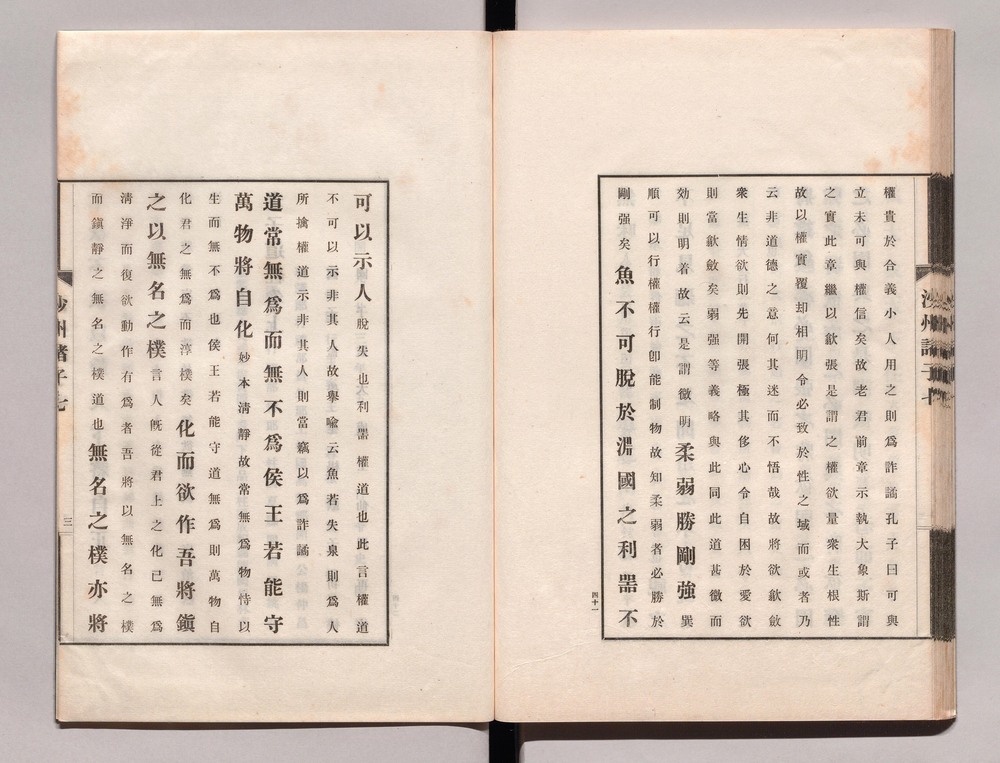 權貴於合義小人用之則爲詐譎孔子曰可與
立未可與權信矣故老君前章示執大象斯謂
之實此章繼以歙張是謂之權欲量衆生根性
故以權實覆却相明令必致於性之域而或者乃
云非道德之意何其迷而不悟哉故將欲歙斂
衆生情欲則先開張極其侈心令自困於愛欲
則當歙斂矣弱强等義略與此同此道甚微而
効則明着故云是謂微明柔弱勝剛強巽
順可以行權權行卽能制物故知柔弱者必勝於
剛强矣魚不可脫於淵國之利噐不
四十一
可以示人脫失也利噐權道也此言權道
不可以示非其人故舉喩云魚若失泉則爲人
所擒權道示非其人則當竊以爲詐譎
道常無爲而無不爲侯王若能守
萬物將自化妙本淸靜故常無爲物恃以
生而無不爲也侯王若能守道無爲則萬物自
化君之無爲而淳樸矣化而欲作吾將鎭
之以無名之樸言人旣從君上之化已無爲
淸淨而復欲動作有爲者吾將以無名之樸
而鎭靜之無名之樸道也無名之樸亦將
沙州諸子七
三